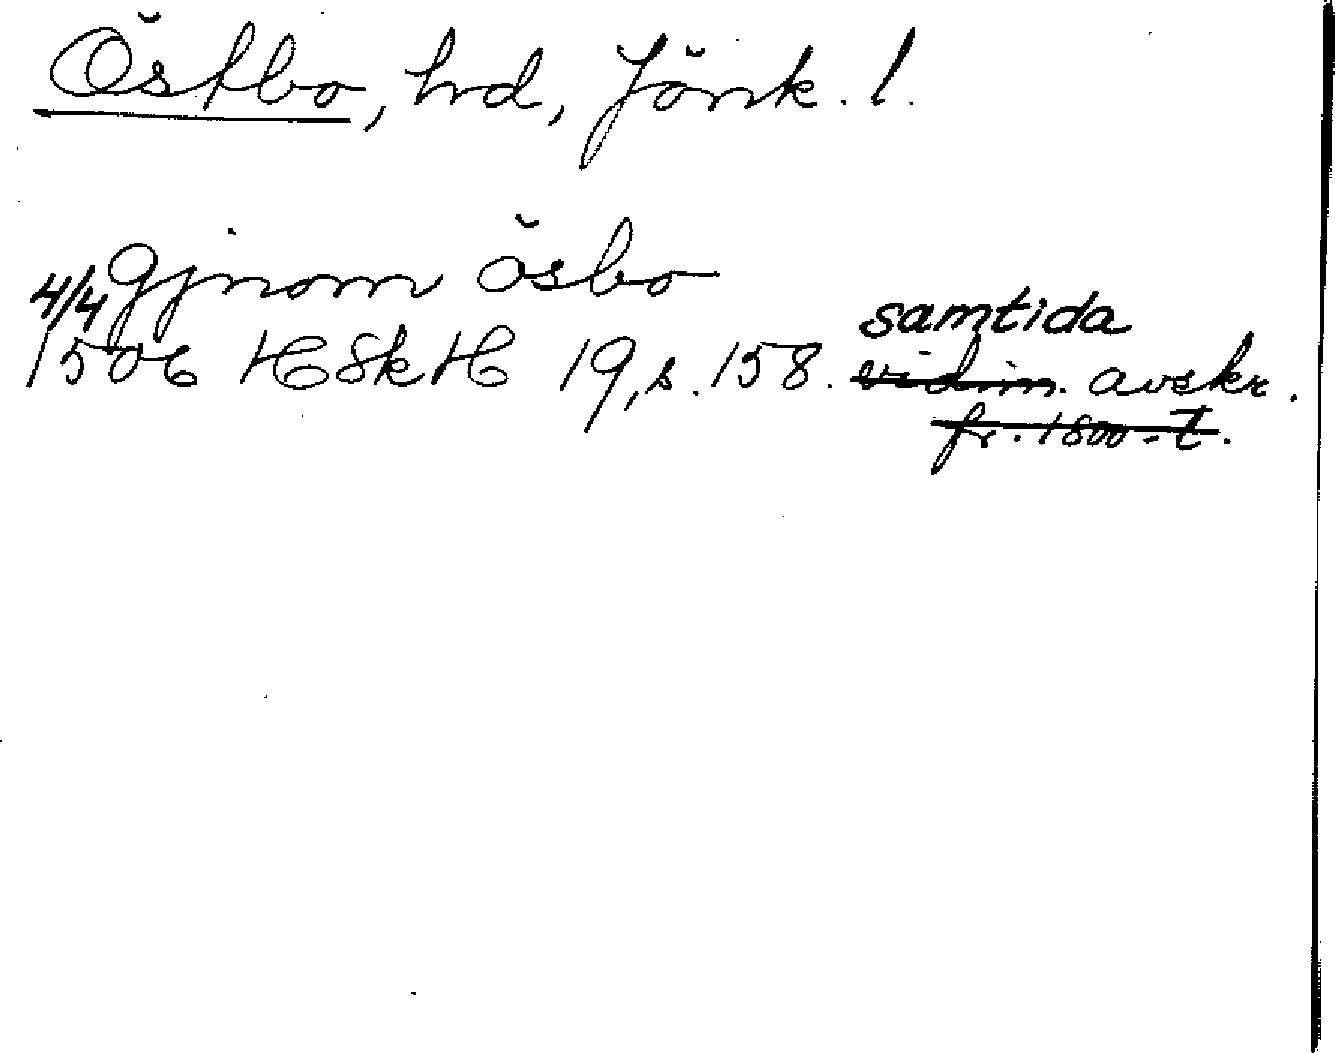 Östbo, hd, Jönk. l.
gjnom ösbo
4/4 1506 HSkH 19, s. 158. samtida
vidim. avskr.
fr. 1800-t.